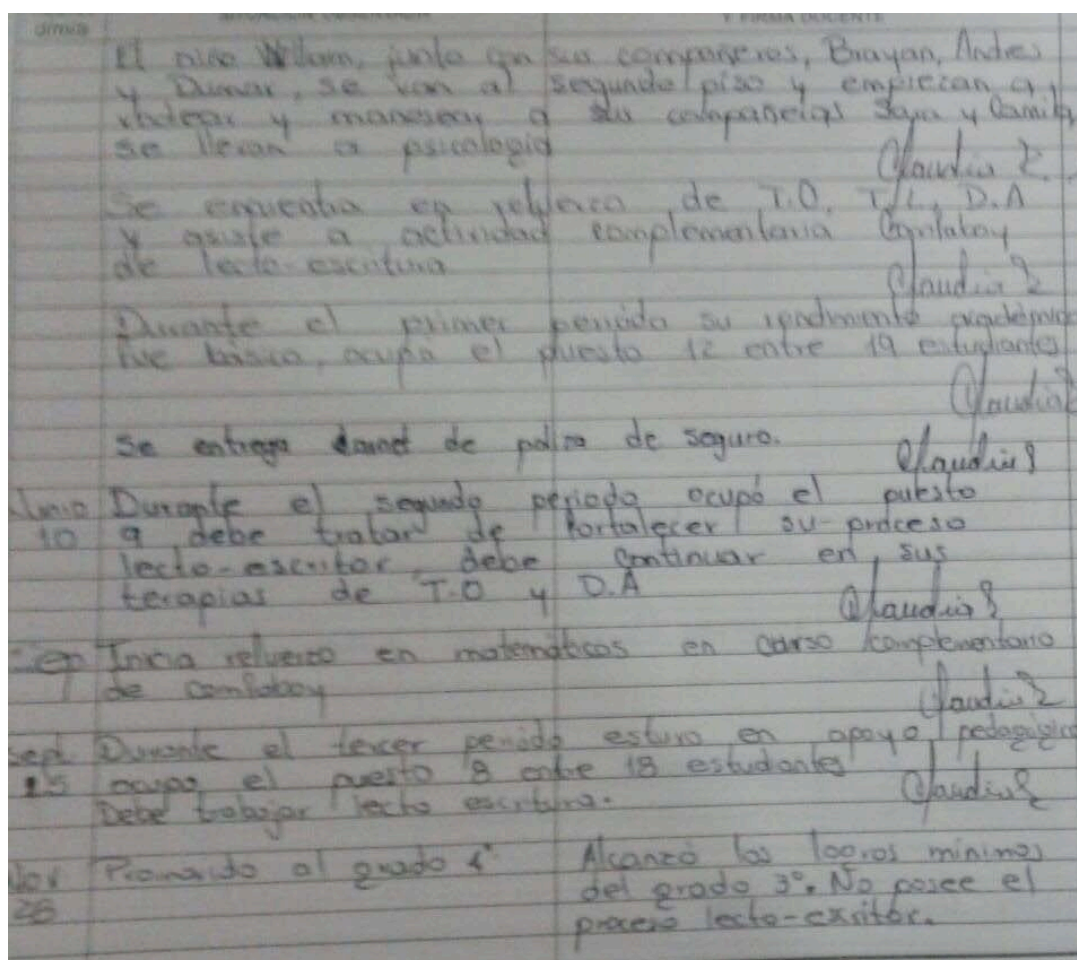 El niño William, junto con sus compañeros, Brayan, Andres
y Dumar, se van al segundo piso y empiezan a
y a sus compañeras Sara y Camila,
se llevan a psicología
Claudia R.
Se encuentra en refuerzo de T.O. T/L, D.A
y asiste a actividad complementaria
de lecto-escritura
Claudia R
Durante el primer periodo su rendimiento académico
fue básico, ocupa el puesto 12 entre 19 estudiantes
Claudia R
Se entrega carnet de poliza de seguro.
Claudia R
Junio Durante el segundo periodo ocupó el puesto
10 9 debe tratar de fortalecer su proceso
lecto-escritor, debe continuar en sus
terapias de T.O y D.A
Claudia R
Inicia refuerzo en matemáticas en curso complementario
de
Claudia R
Sep Durante el tercer periodo estuvo en apoyo pedagógico
25 ocupo el puesto 8 entre 18 estudiantes
Claudia R
Debe trabajar lecto escritura.
Nov Promovido al grado 4° Alcanzó los logros mínimos
26 del grado 3°. No posee el
proceso lecto-escritor.